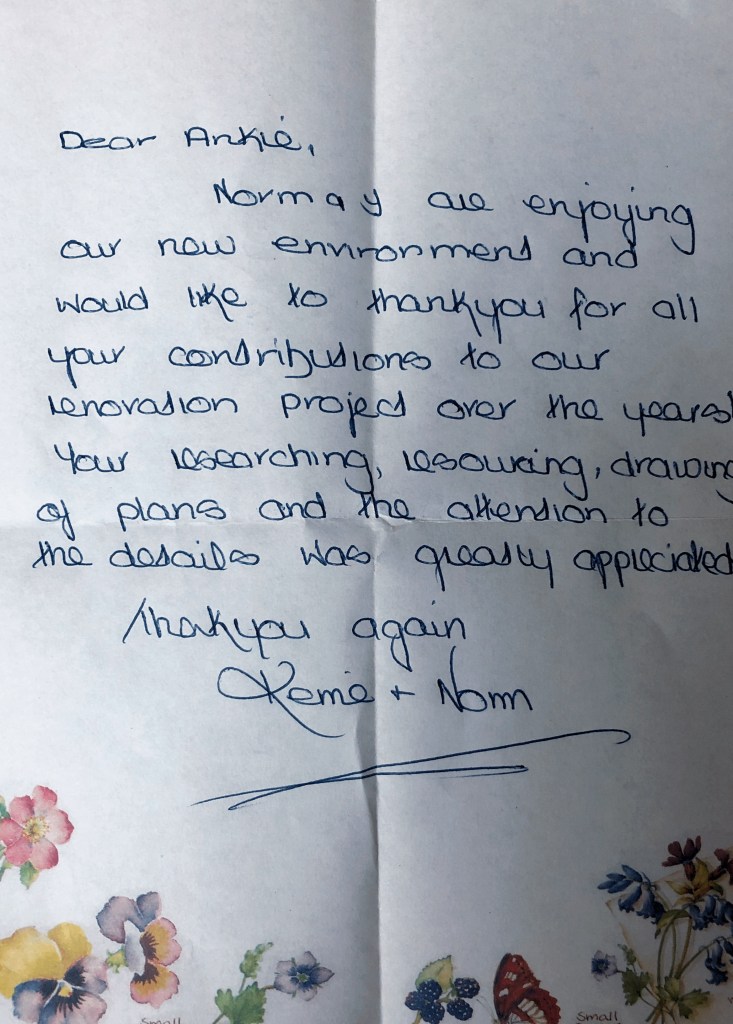 Dear Ankie,
Norm a y are enjoying
our new environment and
would like to thankyou for all
your contributions to our
renovation project over the years!
Your researching, resourcing, drawing
of plans and the attention to
the detailes was greatly appreciated
Thakyou again
Kerrie + Norm
Small
Small